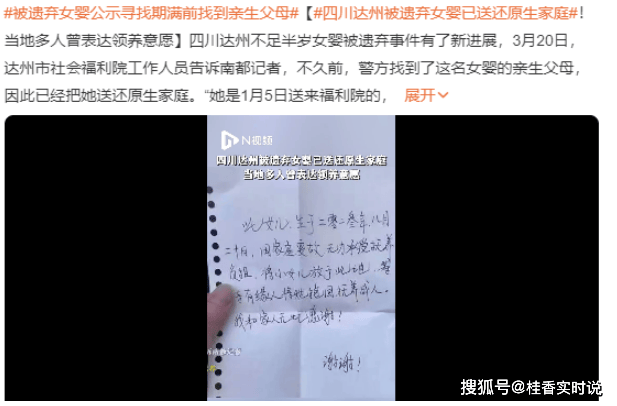 #被遗弃女婴公示寻找期满前找到亲生父母#【#四川达州被遗弃女婴已送还原生家庭#！
当地多人曾表达领养意愿】四川达州不足半岁女婴被遗弃事件有了新进展，3月20日，
达州市社会福利院工作人员告诉南都记者，不久前，警方找到了这名女婴的亲生父母，
因此已经把她送还原生家庭。“她是1月5日送来福利院的， 展开
N视频
四川达州被遗弃女婴已送还原生家庭
当地多人曾表达领养意愿
此女儿，生于二零二叁年，八月
二十日，因家庭变故，无力承担抚养
责任，将小女儿放于此地，
有缘人 抱回抚养成人。
我和家人 感谢！
谢谢！
搜狐号@桂香实时说